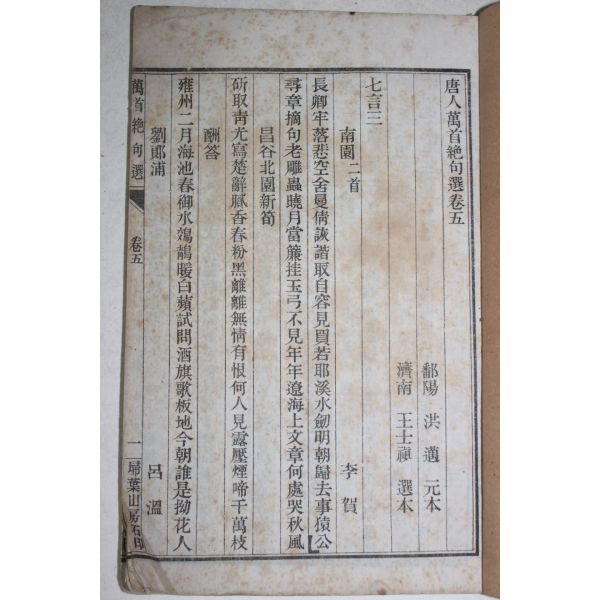 唐人萬首絕句選卷五
鄱陽 洪邁 元本
濟南 王士禛 選本
七言三
南園二首 李賀
長卿牢落悲空舍曼倩詼諧取自容見買若耶溪水劒明朝歸去事猿公
尋章摘句老雕蟲曉月當簾挂玉弓不見年年遼海上文章何處哭秋風
昌谷北園新筍
斫取靑光寫楚辭膩香春粉黑離離無情有恨何人見露壓煙啼千萬枝
酬答
雍州二月海池春御水鵁鶄暖白蘋試問酒旗歌板地今朝誰是拗花人
劉郞浦 呂溫
萬首絕句選 卷五 一 埽葉山房石印